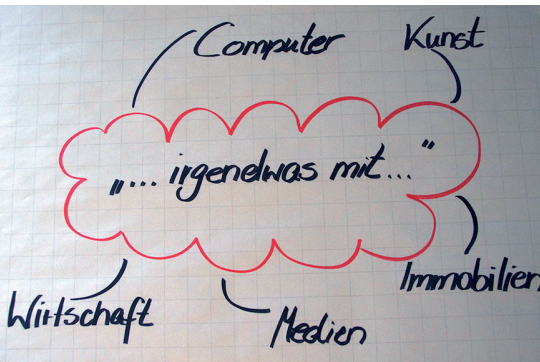 Computer
Kunst
„... irgendwas mit..."
Immobilien
Wirtschaft
Medien